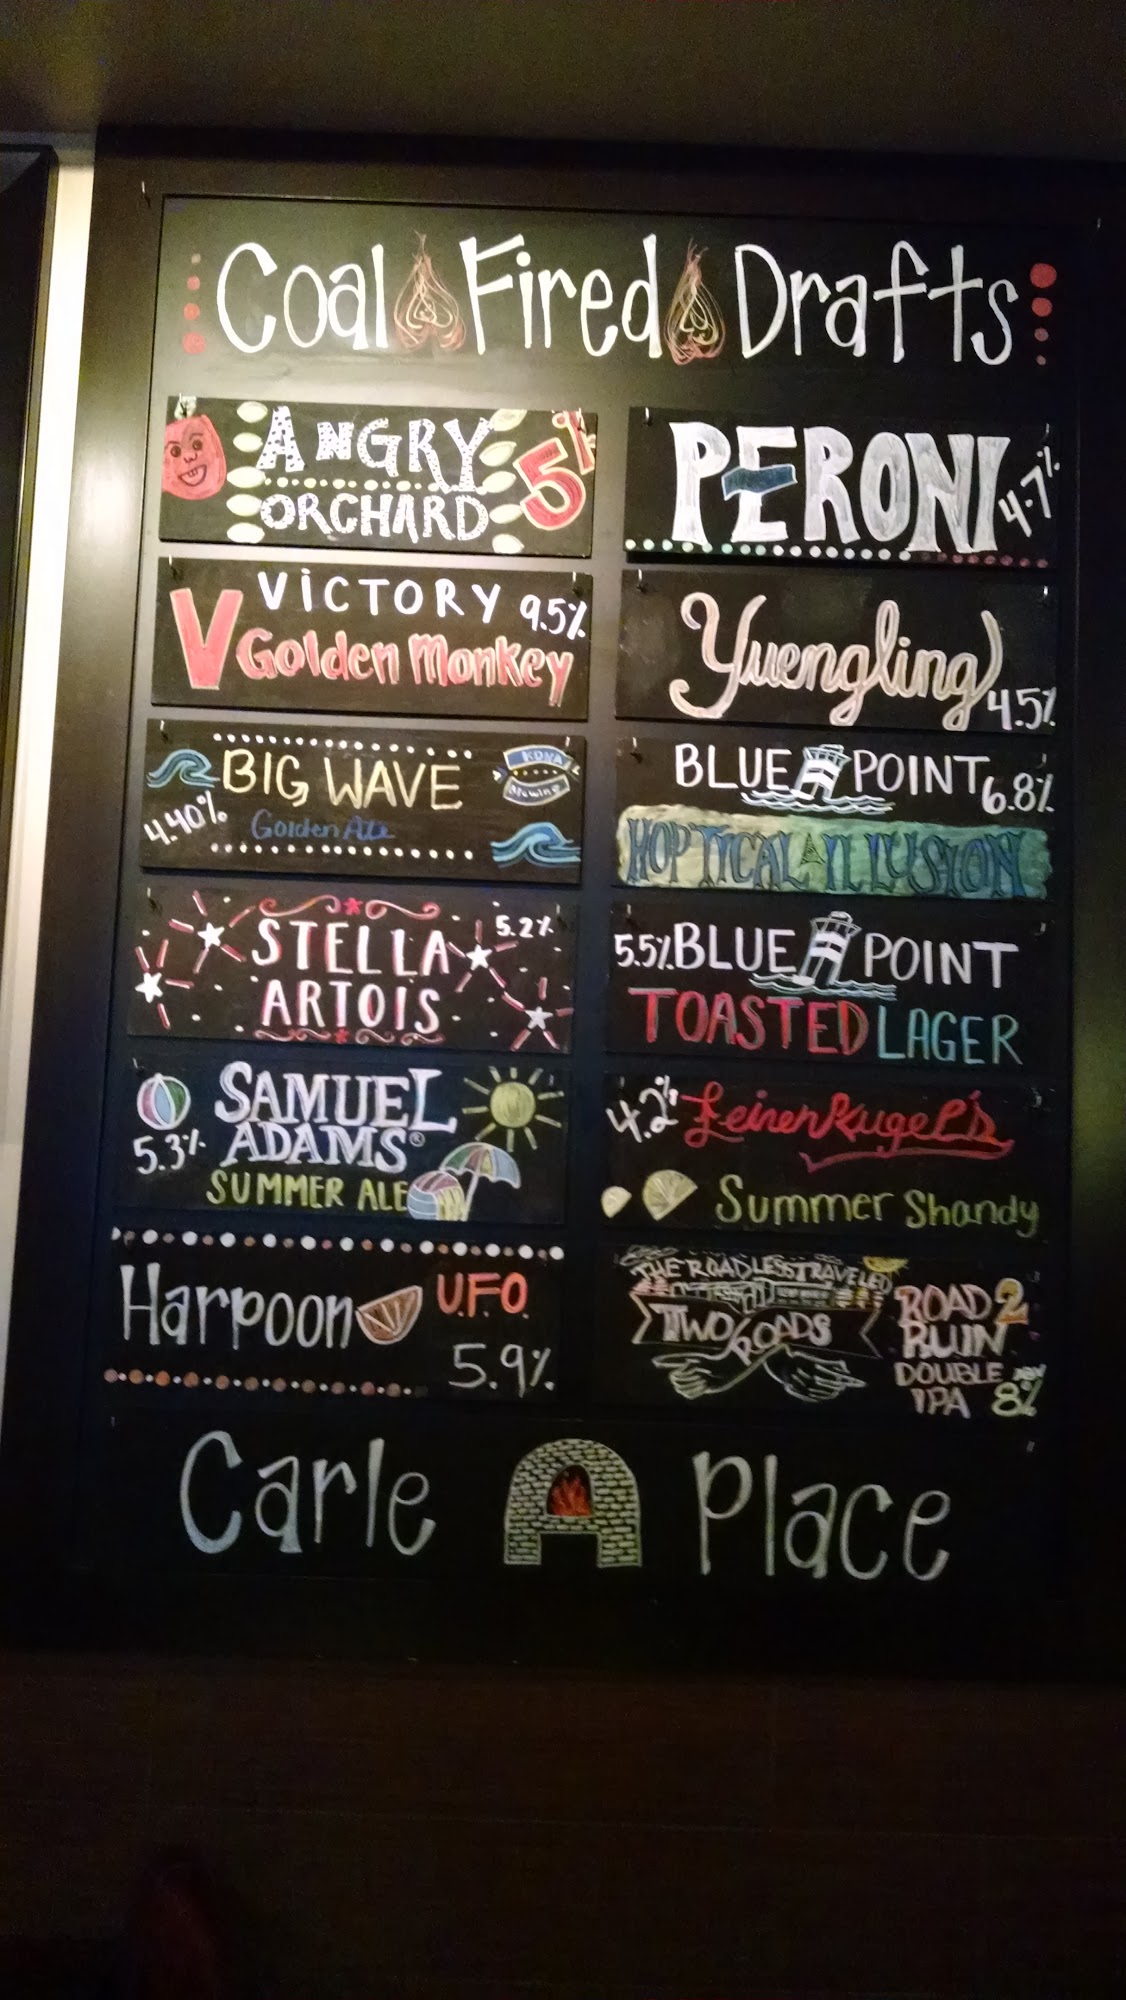 Coal Fired Drafts
ANGRY
ORCHARD
5%
PERONI
4.7%
VICTORY 9.5%
V Golden Monkey
Yuengling
4.5%
BIG WAVE
KONA
Brewing
4.40%
Golden Ale
BLUE POINT 6.8%
HOPTICAL ILLUSION
STELLA
5.2%
ARTOIS
5.5% BLUE POINT
TOASTED LAGER
SAMUEL
ADAMS®
5.3%
SUMMER ALE
4.2% Leinenkugel's
Summer Shandy
Harpoon
U.F.O
5.9%
THE ROAD LESS TRAVELED
TWO ROADS
ROAD 2
RUIN
DOUBLE
IPA
ABV
8%
Carle Place